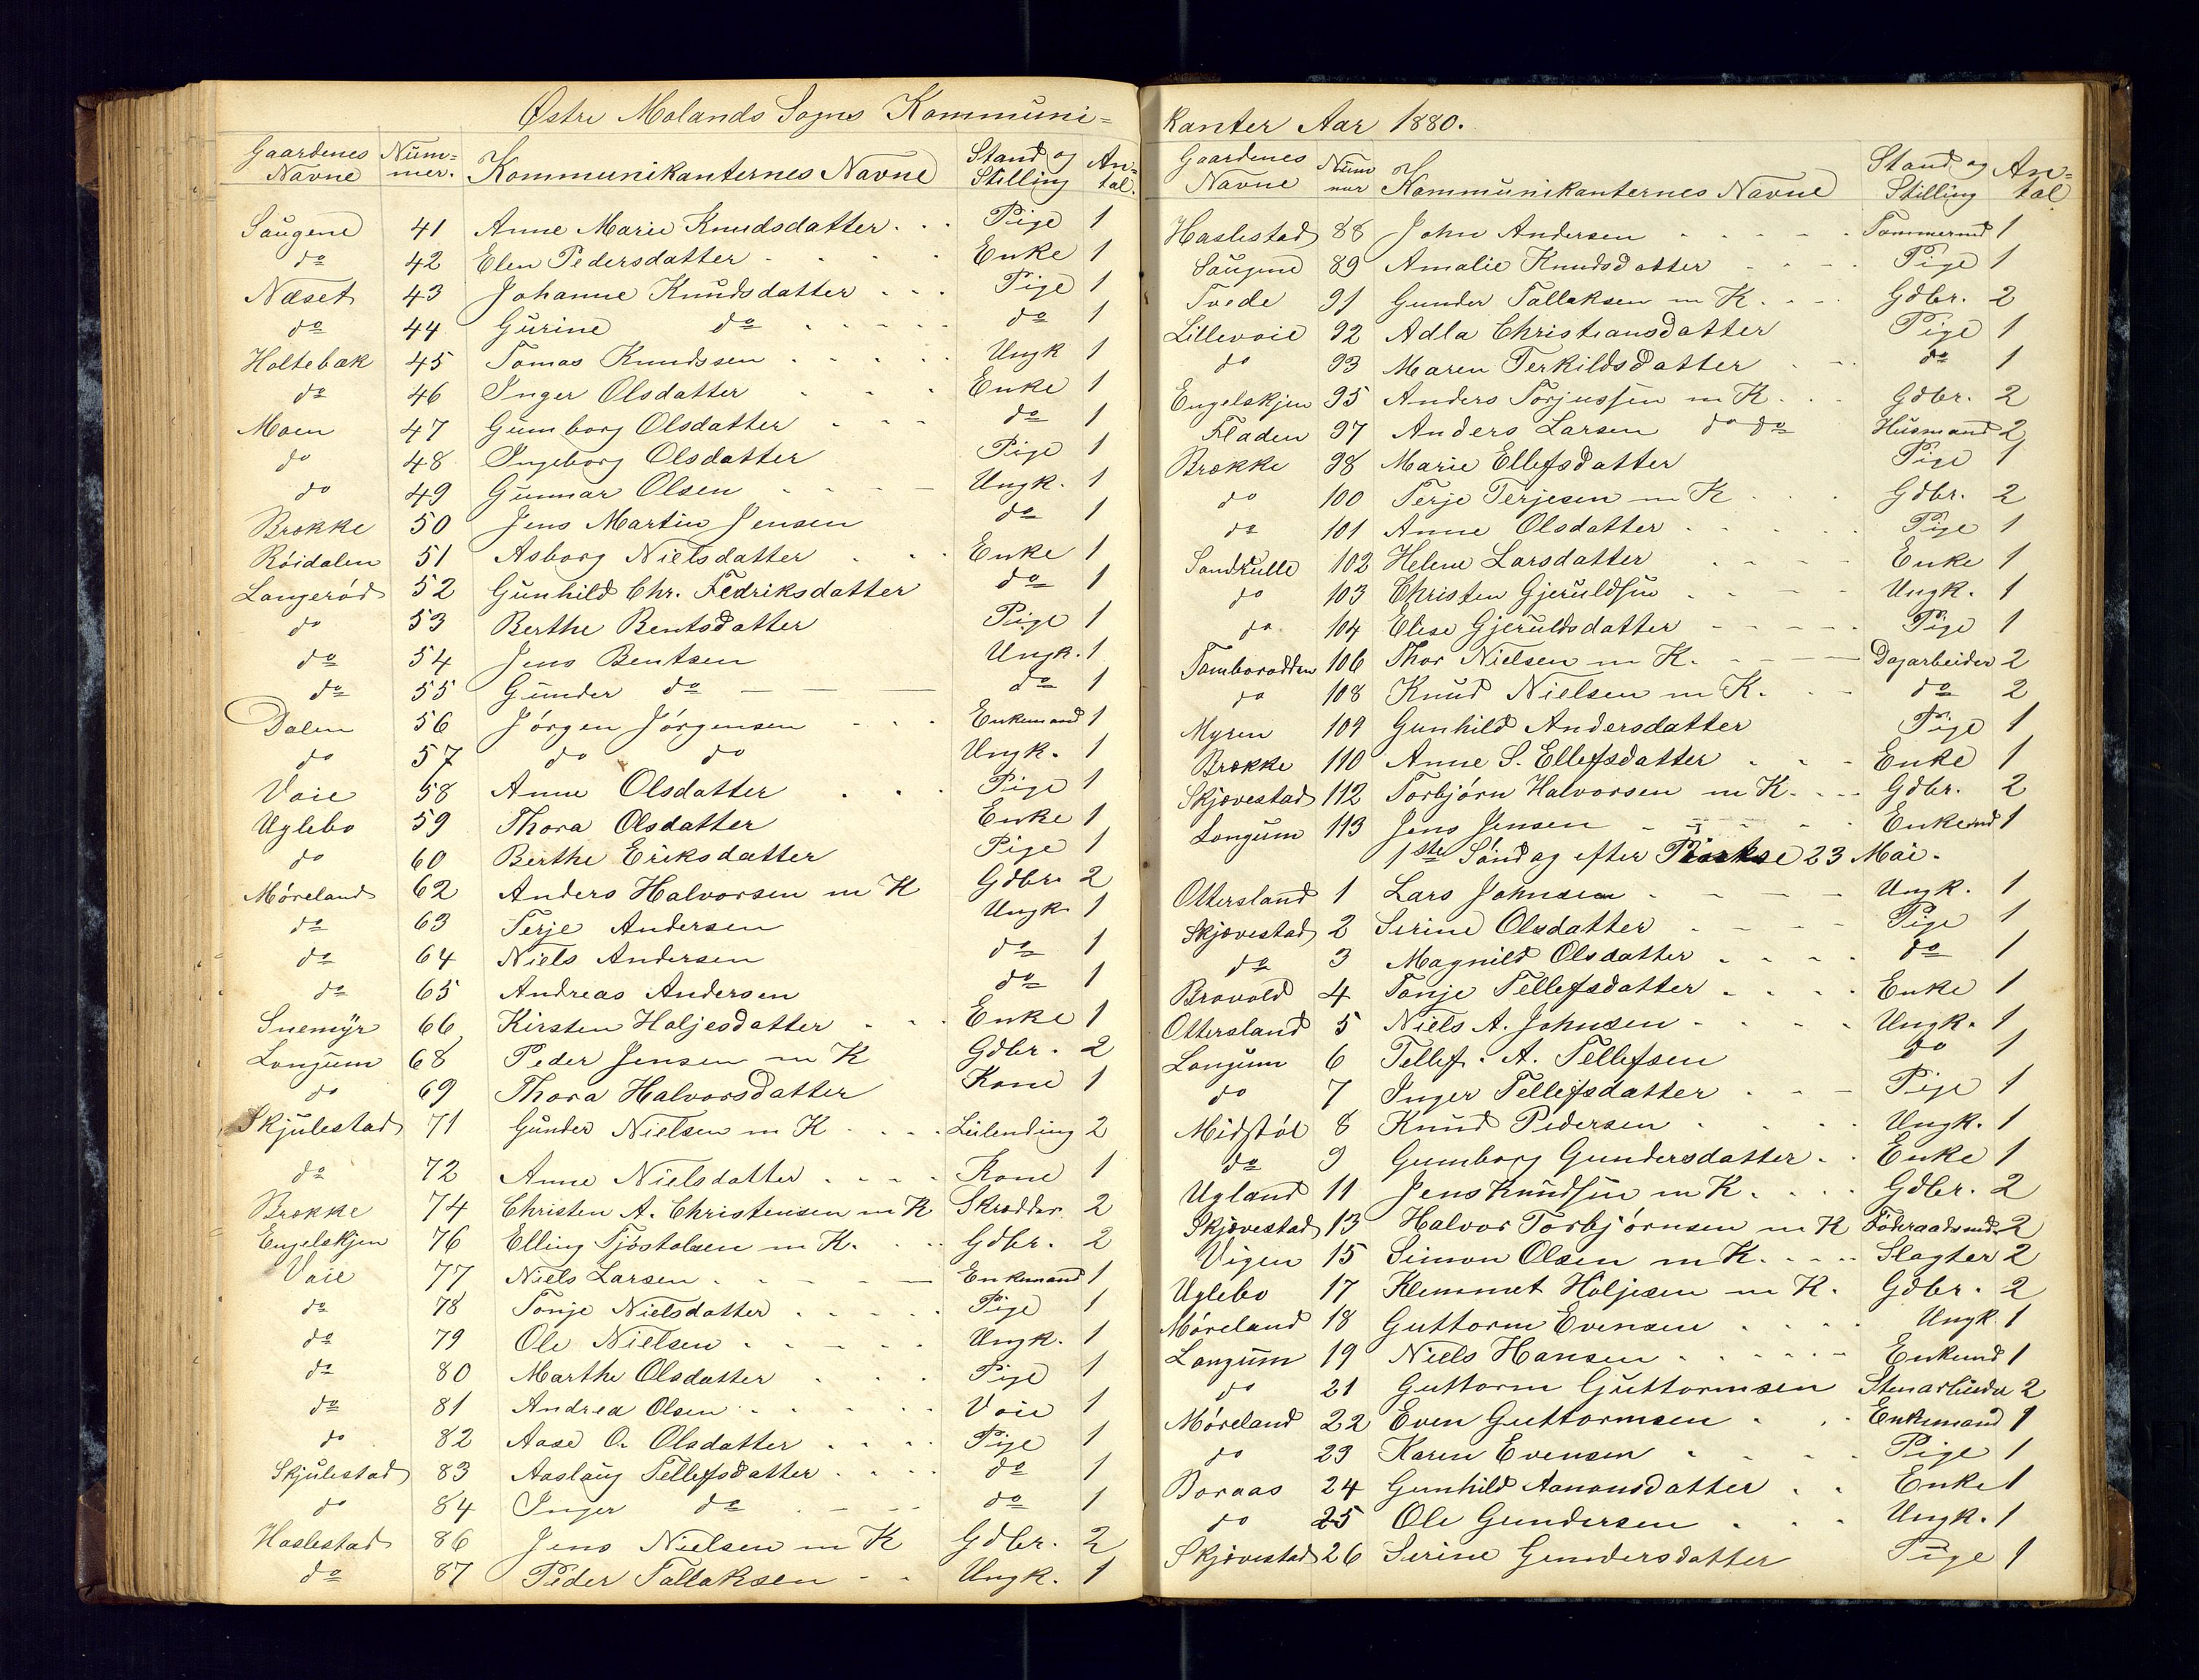 Østre Molands Sogns Kommuni=
Gaardenes Navne Num=mer. Kommunikanternes Navne Stand og Stilling An=tal.
Saugene 41 Anne Marie Knudsdatter Pige 1
do 42 Elen Pedersdatter Enke 1
Næset 43 Johanne Knudsdatter Pige 1
do 44 Gurine do do 1
Holtebæk 45 Tomas Knudssen Ungk 1
do 46 Inger Olsdatter Enke 1
Moen 47 Gumborg Olsdatter do 1
do 48 Ingeborg Olsdatter Pige 1
do 49 Gunnar Olsen Ungk. 1
Brække 50 Jens Martin Jensen do 1
Røidalen 51 Asborg Nielsdatter Enke 1
Langerød 52 Gunhild Chr. Fedriksdatter do 1
do 53 Berthe Bentsdatter Pige 1
do 54 Jens Bentsen Ungk. 1
do 55 Gunder do do 1
Dalen 56 Jørgen Jørgensen Enkemand 1
do 57 do do Ungk. 1
Vaie 58 Anne Olsdatter Pige 1
Uglebo 59 Thora Olsdatter Enke 1
do 60 Berthe Eriksdatter Pige 1
Møreland 62 Anders Halvorsen m K Gdbr. 2
do 63 Terje Andersen Ungk. 1
do 64 Niels Andersen do 1
do 65 Andreas Andersen do 1
Snemyr 66 Kirsten Haljesdatter Enke 1
Longum 68 Peder Jensen m K Gdbr. 2
do 69 Thora Halvorsdatter Kone 1
Skjulestad 71 Gunder Nielsen m K Leilending 2
do 72 Anne Nielsdatter Kone 1
Brække 74 Christen A. Christensen m K Skrædder 2
Engelskjen 76 Elling Tjøstolsen m K. Gdbr. 2
Vaie 77 Niels Larsen Enkemand 1
do 78 Tonje Nielsdatter Pige 1
do 79 Ole Nielsen Ungk. 1
do 80 Marthe Olsdatter Pige 1
do 81 Andrea Olsen Vaie 1
do 82 Aase O. Olsdatter Pige 1
Skjulestad 83 Aaslaug Tellefsdatter do 1
do 84 Inger do do 1
Haslestad 86 Jens Nielsen m K Gdbr. 2
do 87 Peder Tallaksen Ungk. 1
kanter Aar 1880.
Gaardenes Navne Num mer Kommunikanternes Navne Stand og Stilling An=tal
Haslestad 88 John Andersen Tømmermd 1
Saugene 89 Amalie Knudsdatter Pige 1
Tvede 91 Gunder Tallaksen m K. Gdbr. 2
Lillevaie 92 Adla Christiansdatter Pige 1
do 93 Maren Terkildsdatter do 1
Engelskjen 95 Anders Torjussen m K. Gdbr. 2
Fladen 97 Anders Larsen do do Husmand 2
Brække 98 Marie Ellefsdatter Pige 1
do 100 Terje Terjesen m K Gdbr. 2
do 101 Anne Olsdatter Pige 1
Sandkulle 102 Helene Larsdatter Enke 1
do 103 Christen Gjeruldsen Ungk. 1
do 104 Elise Gjeruldsdatter Pige 1
Tamborodden 106 Thor Nielsen m K. Dagarbeider 2
do 108 Knud Nielsen m K. do 2
Myren 109 Gunhild Andersdatter Pige 1
Brække 110 Anne S. Ellefsdatter Enke 1
Skjævestad 112 Torbjørn Halvorsen m K. Gdbr. 2
Longum 113 Jens Jensen Enkemd 1
1ste Søndag efter 23 Mai.
Ottersland 1 Lars Johnsen Ungk. 1
Skjævestad 2 Serine Olsdatter Pige 1
do 3 Magnild Olsdatter do 1
Bravold 4 Tonje Tellefsdatter Enke 1
Ottersland 5 Niels A. Johnsen Ungk. 1
Longum 6 Tellef. A. Tellefsen do 1
do 7 Inger Tellefsdatter Pige 1
Midstøl 8 Knud Pedersen Ungk. 1
do 9 Gumborg Gundersdatter Enke 1
Ugland 11 Jens Knudsen m K. Gdbr. 2
Skjævestad 13 Halvor Torbjørnsen m K Føderaadsmd. 2
Vigen 15 Simon Olsen m K. Slagter 2
Uglebo 17 Klemmet Haljesen m K. Gdbr. 2
Møreland 18 Guttorm Evensen Ungk. 1
Longum 19 Niels Hansen Enkemd 1
do 21 Guttorm Guttormsen Stenarbeider 2
Møreland 22 Even Guttormsen Enkemand 1
do 23 Karen Evensen Pige 1
Boraas 24 Gunhild Aanonsdatter Enke 1
do 25 Ole Gundersen Ungk. 1
Skjævestad 26 Serine Gundersdatter Pige 1